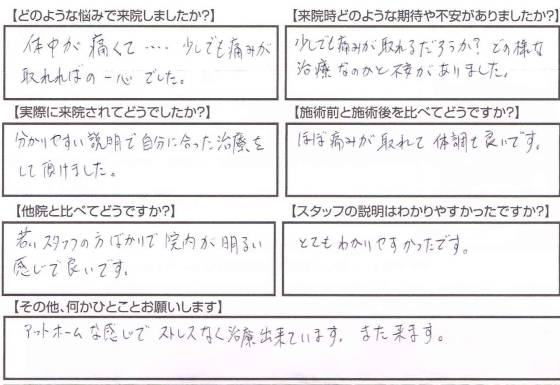 【どのような悩みで来院しましたか?】
体中が痛くて‥‥少しでも痛みが
取れればの一心でした。
【来院時どのような期待や不安がありましたか?】
少しでも痛みが取れるだろうか?どの様な
治療なのかと不安がありました。
【実際に来院されてどうでしたか?】
分かりやすい説明で自分に合った治療を
して頂けました。
【施術前と施術後を比べてどうですか?】
ほぼ痛みが取れて体調も良いです。
【他院と比べてどうですか?】
若いスタッフの方ばかりで院内が明るい
感じで良いです。
【スタッフの説明はわかりやすかったですか?】
とてもわかりやすかったです。
【その他、何かひとことお願いします】
アットホームな感じでストレスなく治療出来ています。また来ます。